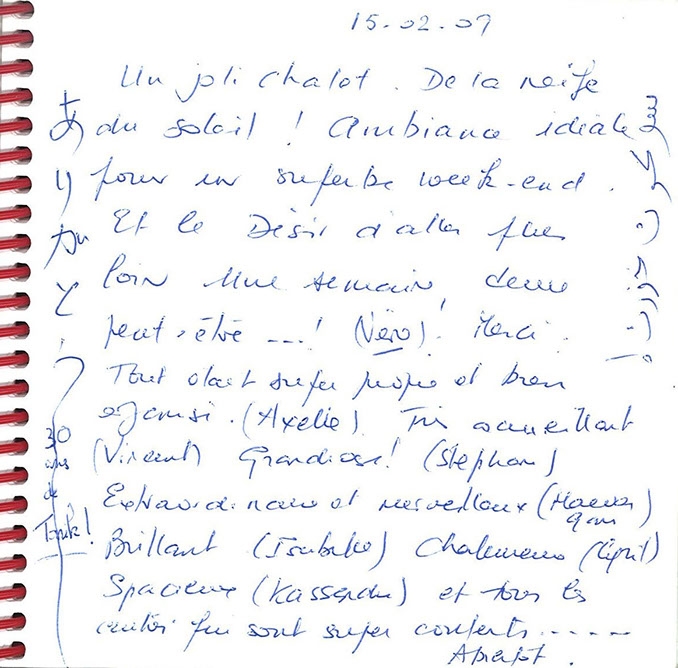 15.02.09
Un joli chalet. De la neige
du soleil ! Ambiance idéale
pour un superbe week-end.
Et le Désir d'aller plus
loin une semaine, deux
peut-être ---! (Véro)! Merci.
Tout était super propre et bien
(Axelle). Très accueillant
(Vincent) Grandiose! (Stephan)
Extraordinaire et merveilleux (
Brillant (    ) Chaleureux (Cyril)
Spacieux (Kassandra) et tous les
autres qui sont super contents.....
A bientôt.
30
ans
de